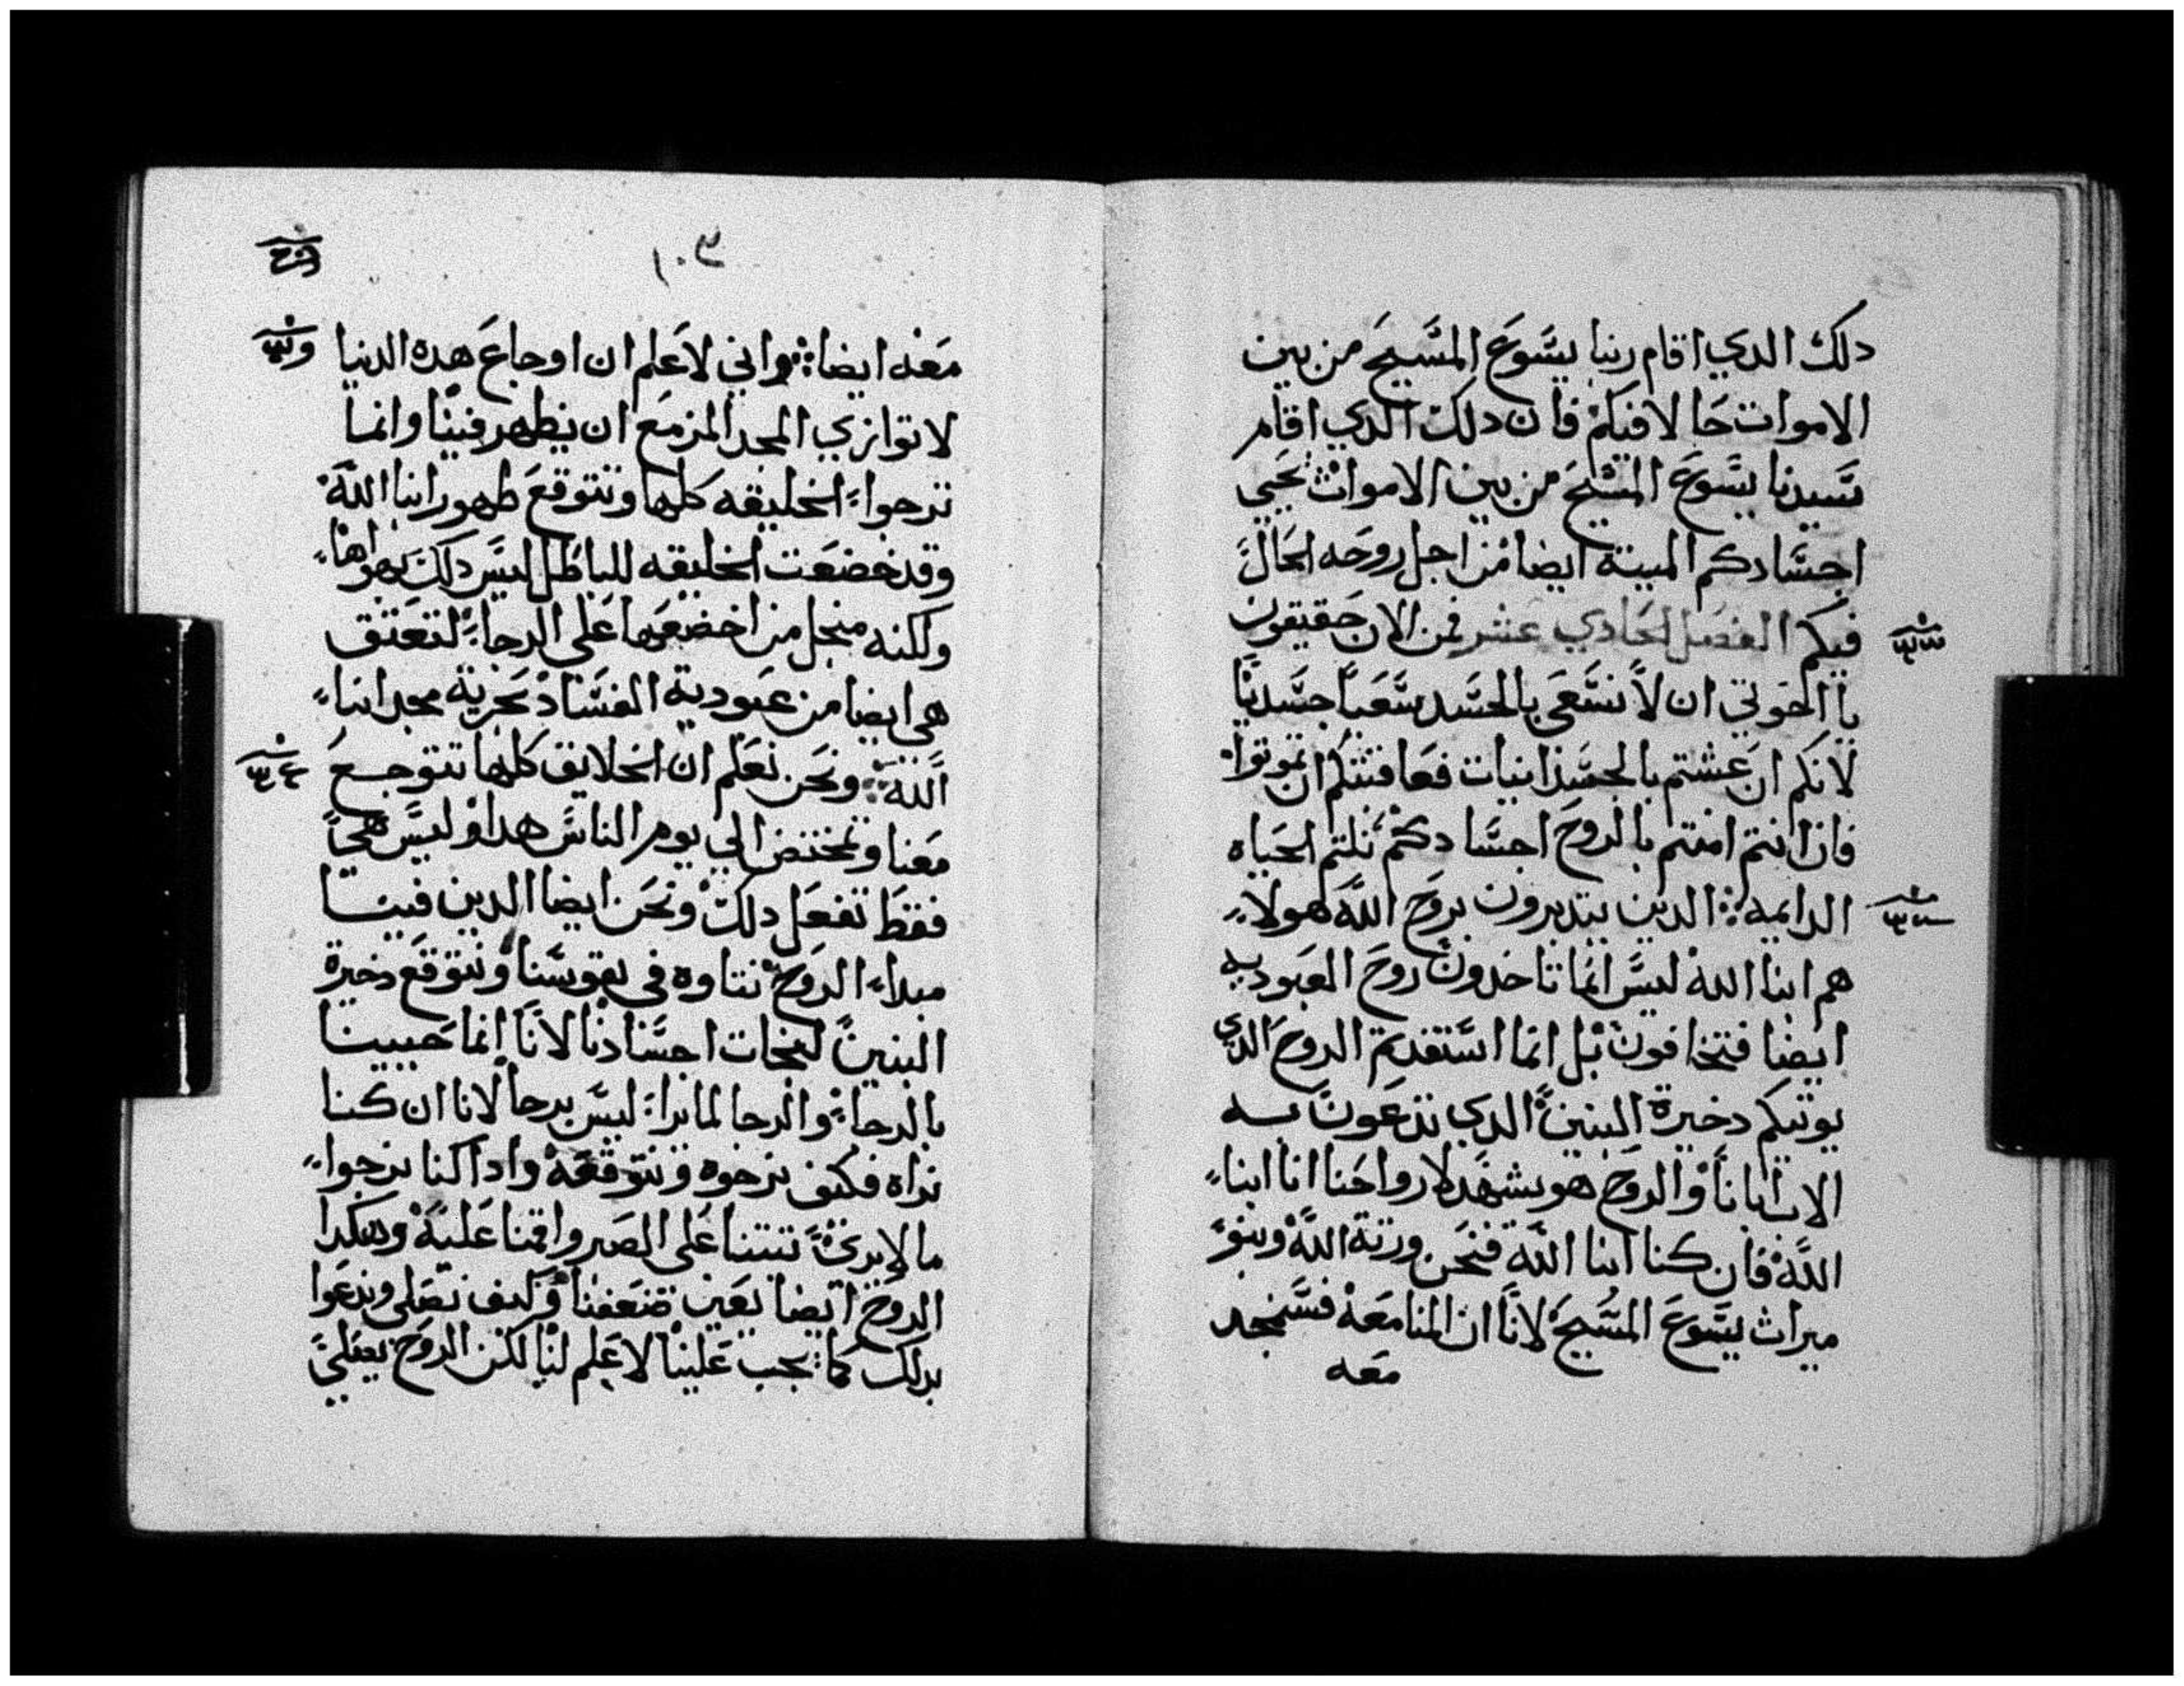 دلك الدي اقام ربنا يسوع المسيح من بين
الاموات حالا فيكم فان دلك الدي اقام
سيدنا يسوع المسيح من بين الاموات يحيي
اجسادكم الميتة ايضا من اجل روحه الحال
فيكم الفصل الحادي عشر فمن الان حقيقون
يا اخوتي ان لا نسعى بالجسد سعيا جسديا
لانكم ان عشتم بالجسدانيات فعاقبتكم ان تموتوا
فان انتم امتم بالروح اجسادكم نلتم الحياه
الدايمه الدين يتدبرون بروح الله هولاء
هم ابنا الله ليس انما تاخدون روح العبوديه
ايضا فتخافون بل انما استفدتم الروح الدي
يوتيكم دخيرة البنين الدي تدعون به
الاب ابانا والروح هو يشهد لارواحنا انا ابناء
الله فان كنا ابنا الله فنحن ورثة الله وبنو
ميراث يسوع المسيح لانا ان المنا معه فسنمجد
معه
١٠٣
معه ايضا واني لاعلم ان اوجاع هده الدنيا
لا توازي المجد المزمع ان يظهر فينا وانما
ترجواء الخليقه كلها وتتوقع ظهور ابنا الله
وقد خضعت الخليقه للباطل ليس دلك بهواها
ولكنه منجل من اخضعها على الرجاء لتعتق
هي ايضا من عبودية الفساد بحرية مجد ابناء
الله ونحن نعلم ان الخلايق كلها تتوجع
معنا وتمخض الي يوم الناس هدا وليس هي
فقط تفعل دلك ونحن ايضا الدين فينا
مبداء الروح نتاوه في نفوسنا ونتوقع دخيرة
البنين لنجات اجسادنا لانا انما حيينا
بالرجاء والرجا لما يراء ليس برجا لانا ان كنا
نراه فكيف نرجوه ونتوقعه وادا كنا نرجواء
ما لا يرى ثبتنا على الصبر واقمنا عليه وهكدا
الروح ايضا تعين ضعفنا وكيف نصلى وندعوا
بدلك كما يجب علينا لا علم لنا لكن الروح يصلي